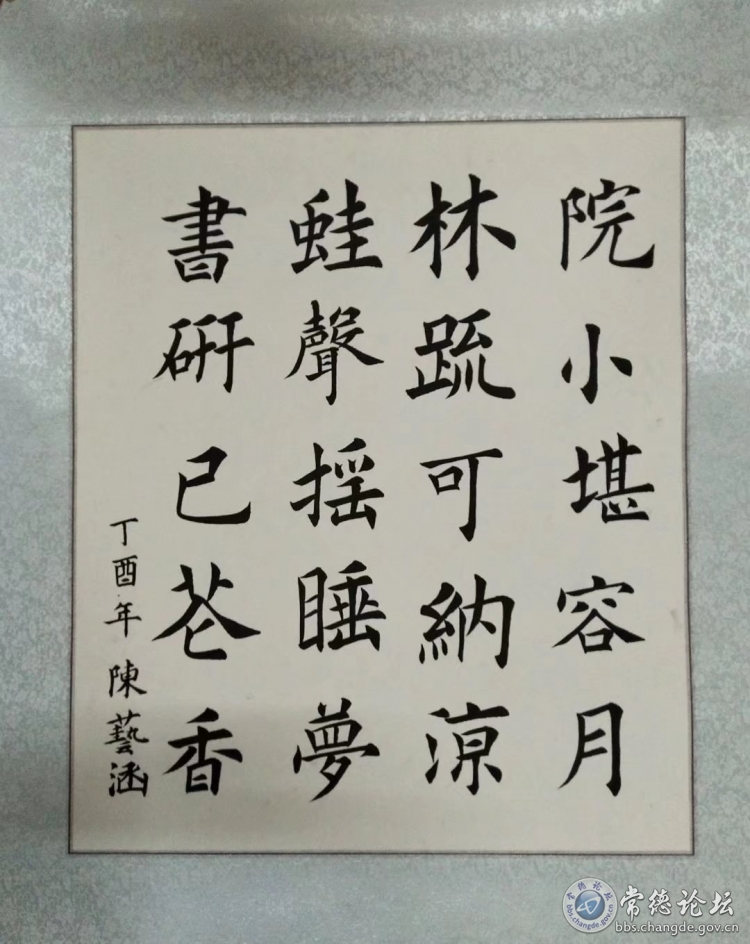 院小堪容月
林疏可納涼
蛙聲摇睡夢
書研已苍香
丁酉年陳藝涵
常德论坛
bbs.changde.gov.cn